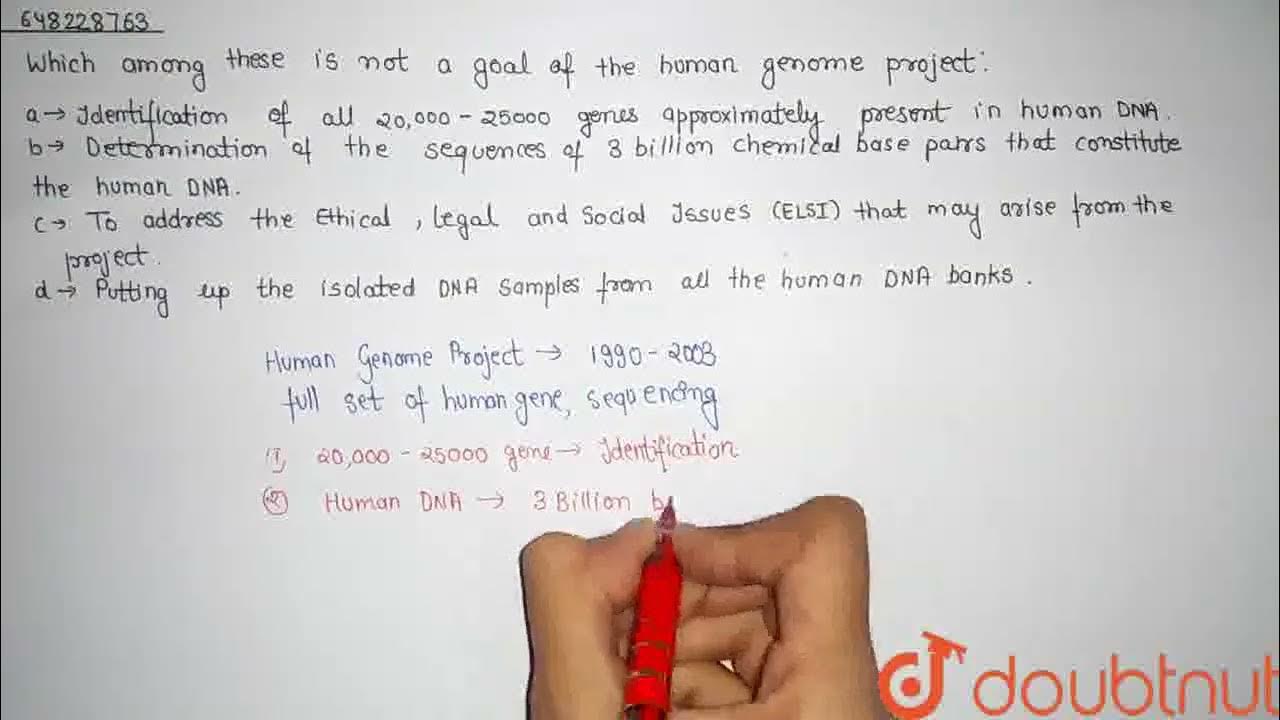 648228763
Which among these is not a goal of the human genome project:
a→ Identification of all 20,000-25000 genes approximately present in human DNA.
b→ Determination of the sequences of 3 billion chemical base pairs that constitute
the human DNA.
c→ To address the Ethical, Legal and Social Issues (ELSI) that may arise from the
project.
d→ Putting up the isolated DNA samples from all the human DNA banks.
Human Genome Project → 1990-2003
full set of human gene, sequencing
(1) 20,000-25000 gene→ Identification
(2) Human DNA → 3 Billion b
doubtnut